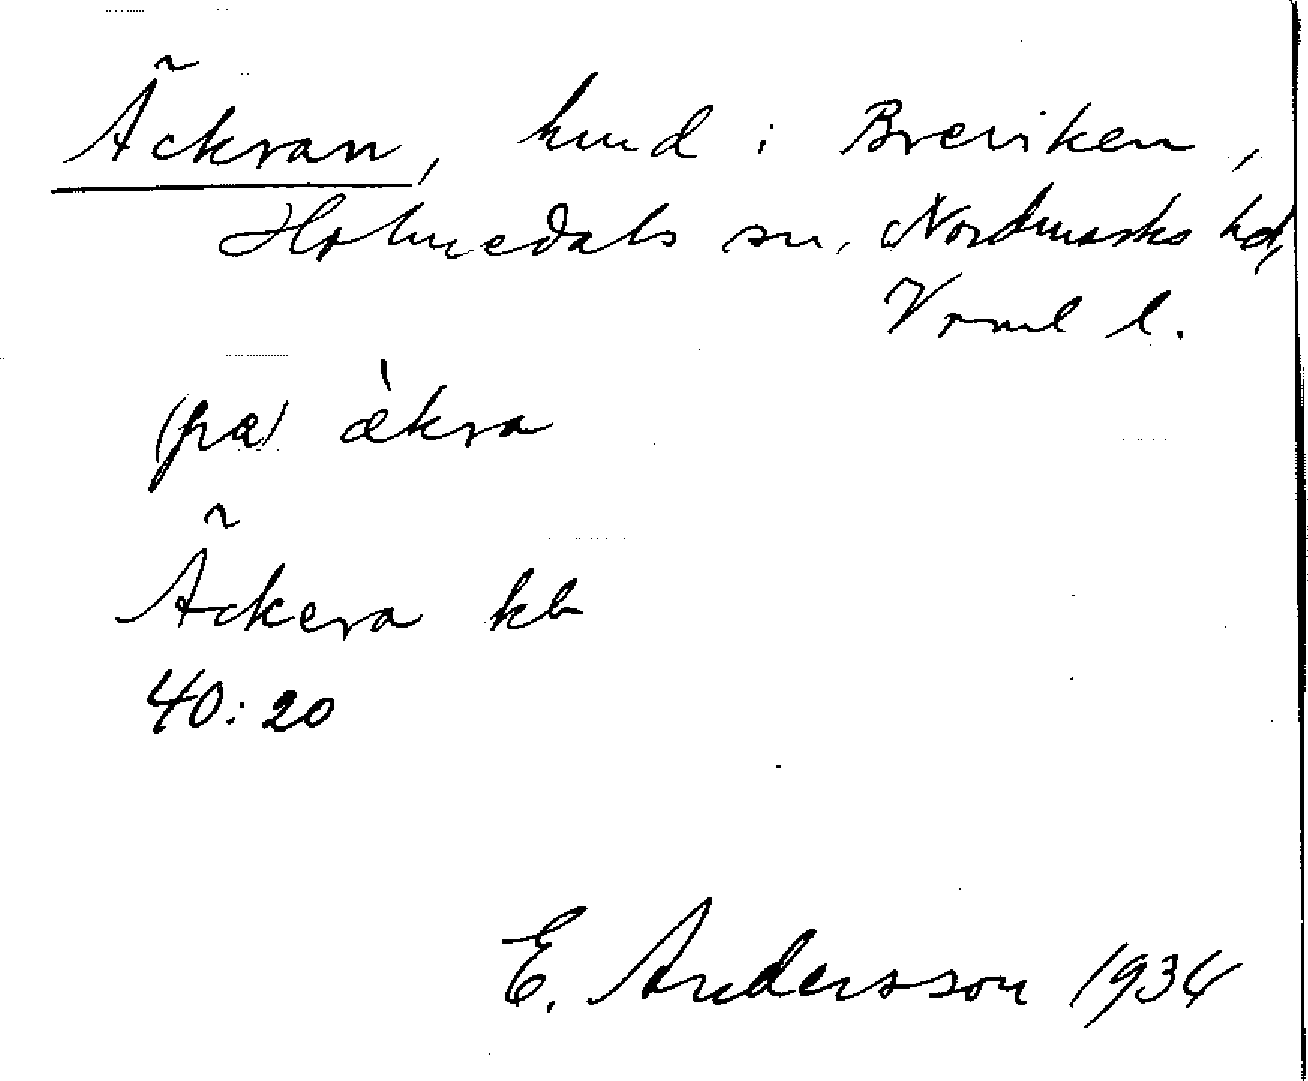 Äckran, hmd i Breviken,
Holmedals sn, Nordmarks hd,
Vrml l.
(præ) æ̀kra
Äckera kb
40:20
E. Andersson 1934